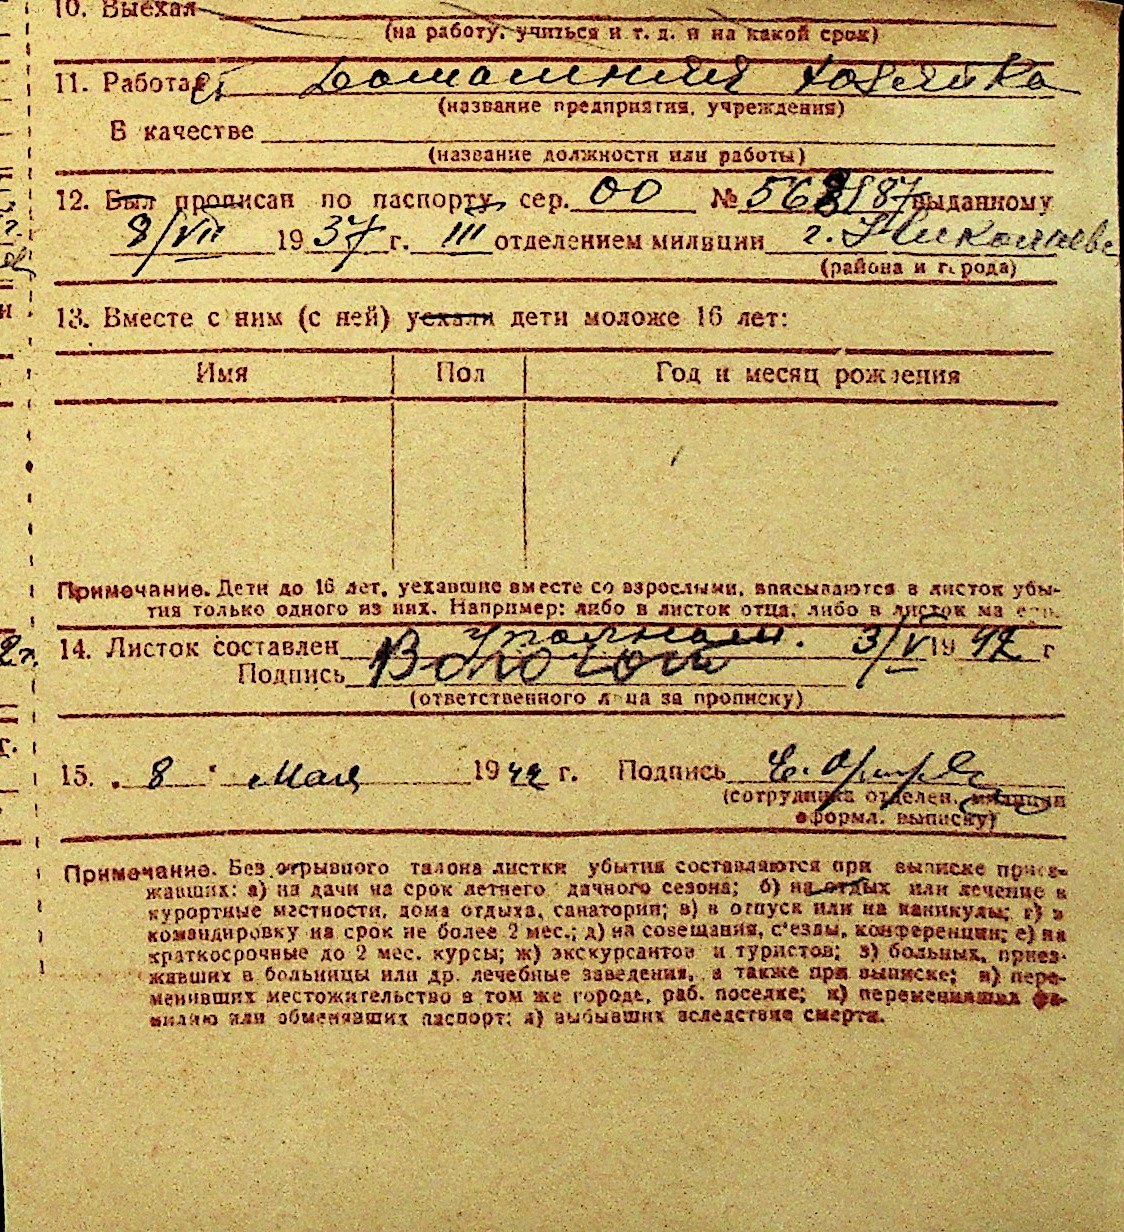 10. Выехал
(на работу, учиться и т. д. и на какой срок)
11. Работает Домашняя хозяйка
(название предприятия, учреждения)
В качестве
(название должности или работы)
12. Был прописан по паспорту сер. ОО № выданному
8/VII 1937 г. III отделением милиции г. Николаев
(района и города)
13. Вместе с ним (с ней) уехали дети моложе 16 лет:
Имя Пол Год и месяц рождения
Примечание. Дети до 16 лет, уехавшие вместе со взрослыми, вписываются в листок убы-
тия только одного из них. Например: либо в листок отца, либо в листок ма
14. Листок составлен 3/V 1942 г
Подпись
(ответственного лица за прописку)
15. „8“ Мая 1942 г. Подпись
(сотрудника отделен. милиции
оформл. выписку)
Примечание. Без отрывного талона листки убытия составляются при выписке приез-
жавших: а) на дачи на срок летнего дачного сезона; б) на отдых или лечение в
курортные местности, дома отдыха, санатории; в) в отпуск или на каникулы; г) в
командировку на срок не более 2 мес.; д) на совещания, с'езды, конференции; е) на
краткосрочные до 2 мес. курсы; ж) экскурсантов и туристов; з) больных, приез-
жавших в больницы или др. лечебные заведения, а также при выписке; и) пере-
менивших местожительство в том же городе, раб. поселке; к) переменивших фа-
милию или обменявших паспорт; л) выбывших вследствие смерти.